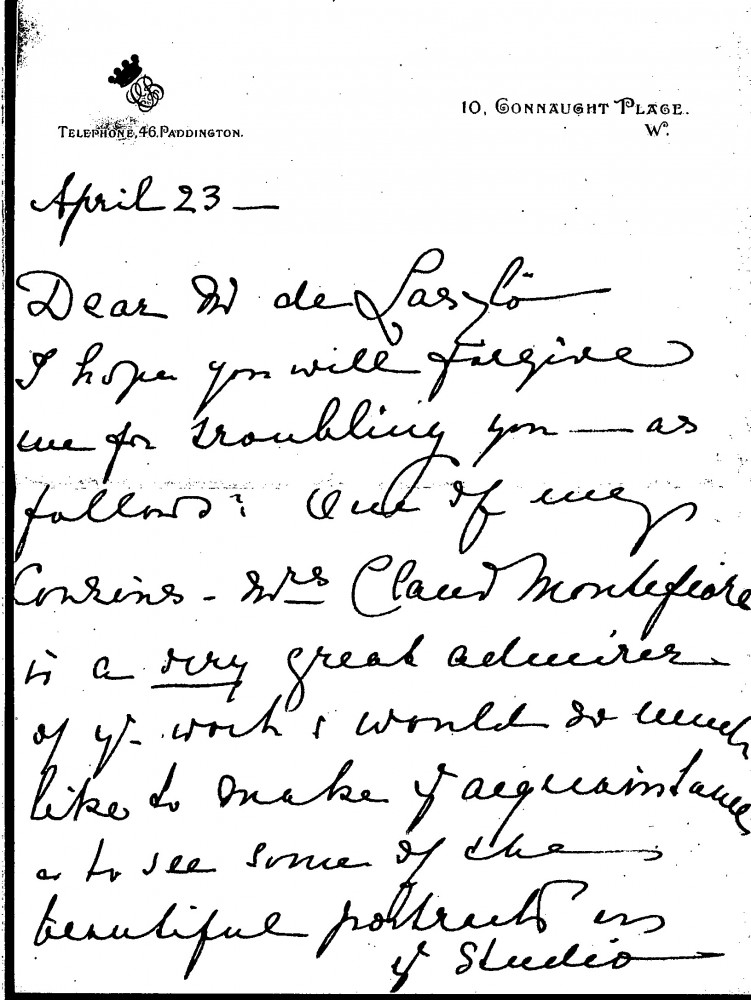 10, CONNAUGHT PLACE.
W.
TELEPHONE, 46, PADDINGTON.
April 23 —
Dear Mr de László
I hope you will forgive
me for troubling you — as
follows: One of my
Cousins - Mrs Claud Montefiore
is a very great admirer
of yr work & would so much
like to make yr acquaintance
& to see some of the
beautiful portraits in
yr Studio